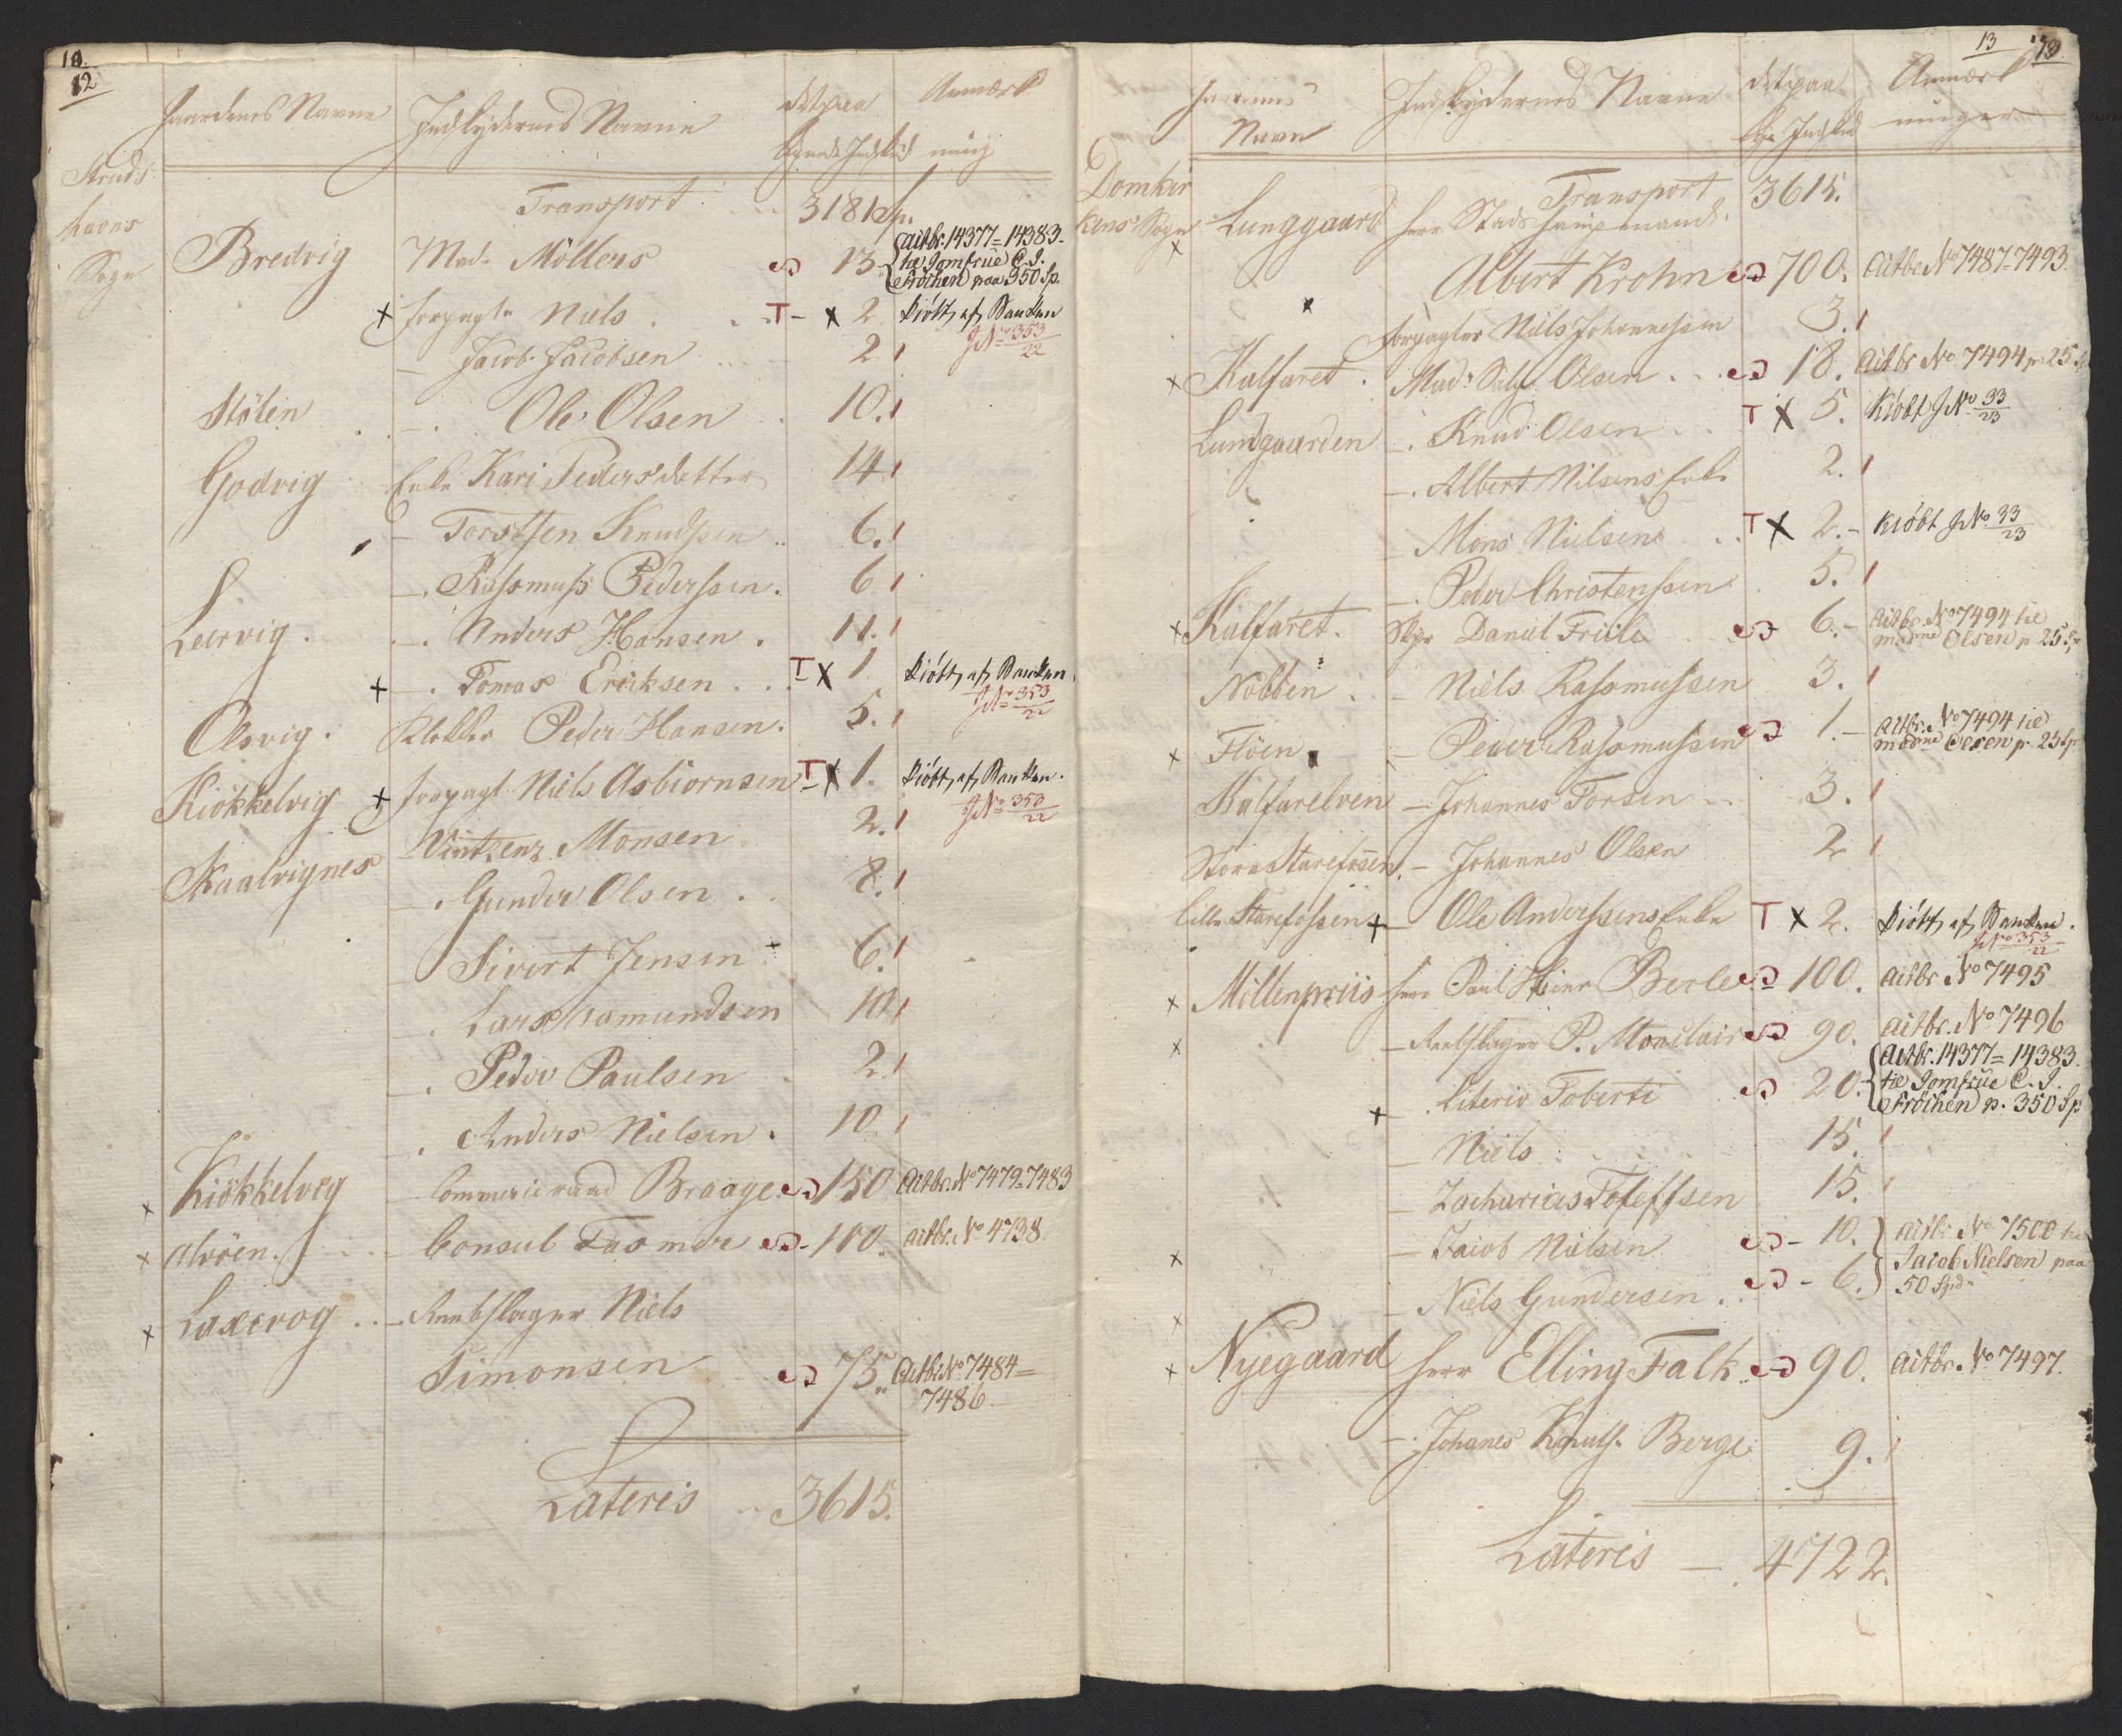 10.
12
Gaardenes Navne Indskydernes Navne det paa Anmærk
lignede Indskud ning
Struds
havns
Sogn
Transport 3181 Sp.
Bredvig Mad. Möllers 13 Actbr. 14377=14383.
til Jomfrue C. J.
Fröchen paa 350 Sp.
x forpagtr Niels T - x 2 kiöbt af Banken
JNo 353/22
— Jacob Jacobsen 2
Stölen — Ole Olsen 10.
Godvig Enke Kari Pedersdatter 14
— Torstsen Knudssen 6.
— Rassmuss Pederssen. 6
Leervig. — Anders Hansen. 11.
x — Tomas Ericksen T x 1 kiöbt af Banken.
JNo 353/22
Olsvig. Klokker Peder Hansen. 5.
Kiökkelvig x forpagt. Niels Asbiornsen T x 1. kiöbt af Banken.
JNo 353/22
— Vintzenz Monsen 2.
Skaalvignes — Gunder Olsen 8.
— Sivert Jensen 6.
— Lars Aamundsen 10
— Peder Paulsen 2.
— Anders Nielsen. 10
x Kiökkelvig — Commerceraad Braage 150 Actbr. No 7479=7483
x Alvöen. — Consul Fasmer 100. actbr. No 4738.
x Laxevog — Reebslager Niels
Simonsen 75 Actbr No 7484=
7486.
Lateris 3615.
13 13.
Gaardens Indskydernes Navne det paa Anmærk
Navn lign Indskud ninger
Domkir
kens Sogn
Transport 3615.
x Lunggaard Herr Stads Hauptmand
Albert Krohn 700. Actbr No 7487=7493.
x forpagter Niels Johannessen 3.
x Kalfaret. Mad. Olsen 18. Actbr No 7494 p 25 Sp
Lundgaarden — Knud Olsen T x 5. Kiöbt JNo 33/23
— Albert Nilsens Enke 2.
— Mons Nielsen T x 2. - Kiöbt JNo 33/23
— Peder Christenssen 5.
x Kalfaret. Skpr Daniel Friile 6. - Actbr. No 7494 til
madme Olsen p 25 Sp
Nöbben — Niels Rassmussen 3.
x Flöen — Peder Rassmussen 1. - Actbr. No 7494 til
madme Olsen p 25 Sp
Kalfarelven — Johannes Torsen 3.
Store Starefossen. — Johannes Olsen 2
Lille Starefossen x — Ole Anderssens Enke T x 2. kiöbt af Banken.
JNo 353/22
x Möllenpriis Herr Paul Meier Berle 100. actbr No 7495
x — Reebslager P. Monclair 90. actbr. No 7496
x — Literio Toberti 20. Actbr. 14377=14383.
til Jomfrue C. J.
Fröchen p. 350 Sp
— Niels 15.
— Zacharias Toleffsen 15.
x — Jacob Nielsen 10. actbr No 7500 til
x — Niels Gundersen 6. Jacob Nielsen paa
50 Spd.
x Nyegaard Herr Elling Falk 90. actbr. No 7497.
— Johanes Knuds. Berge 9.
Lateris — 4722.